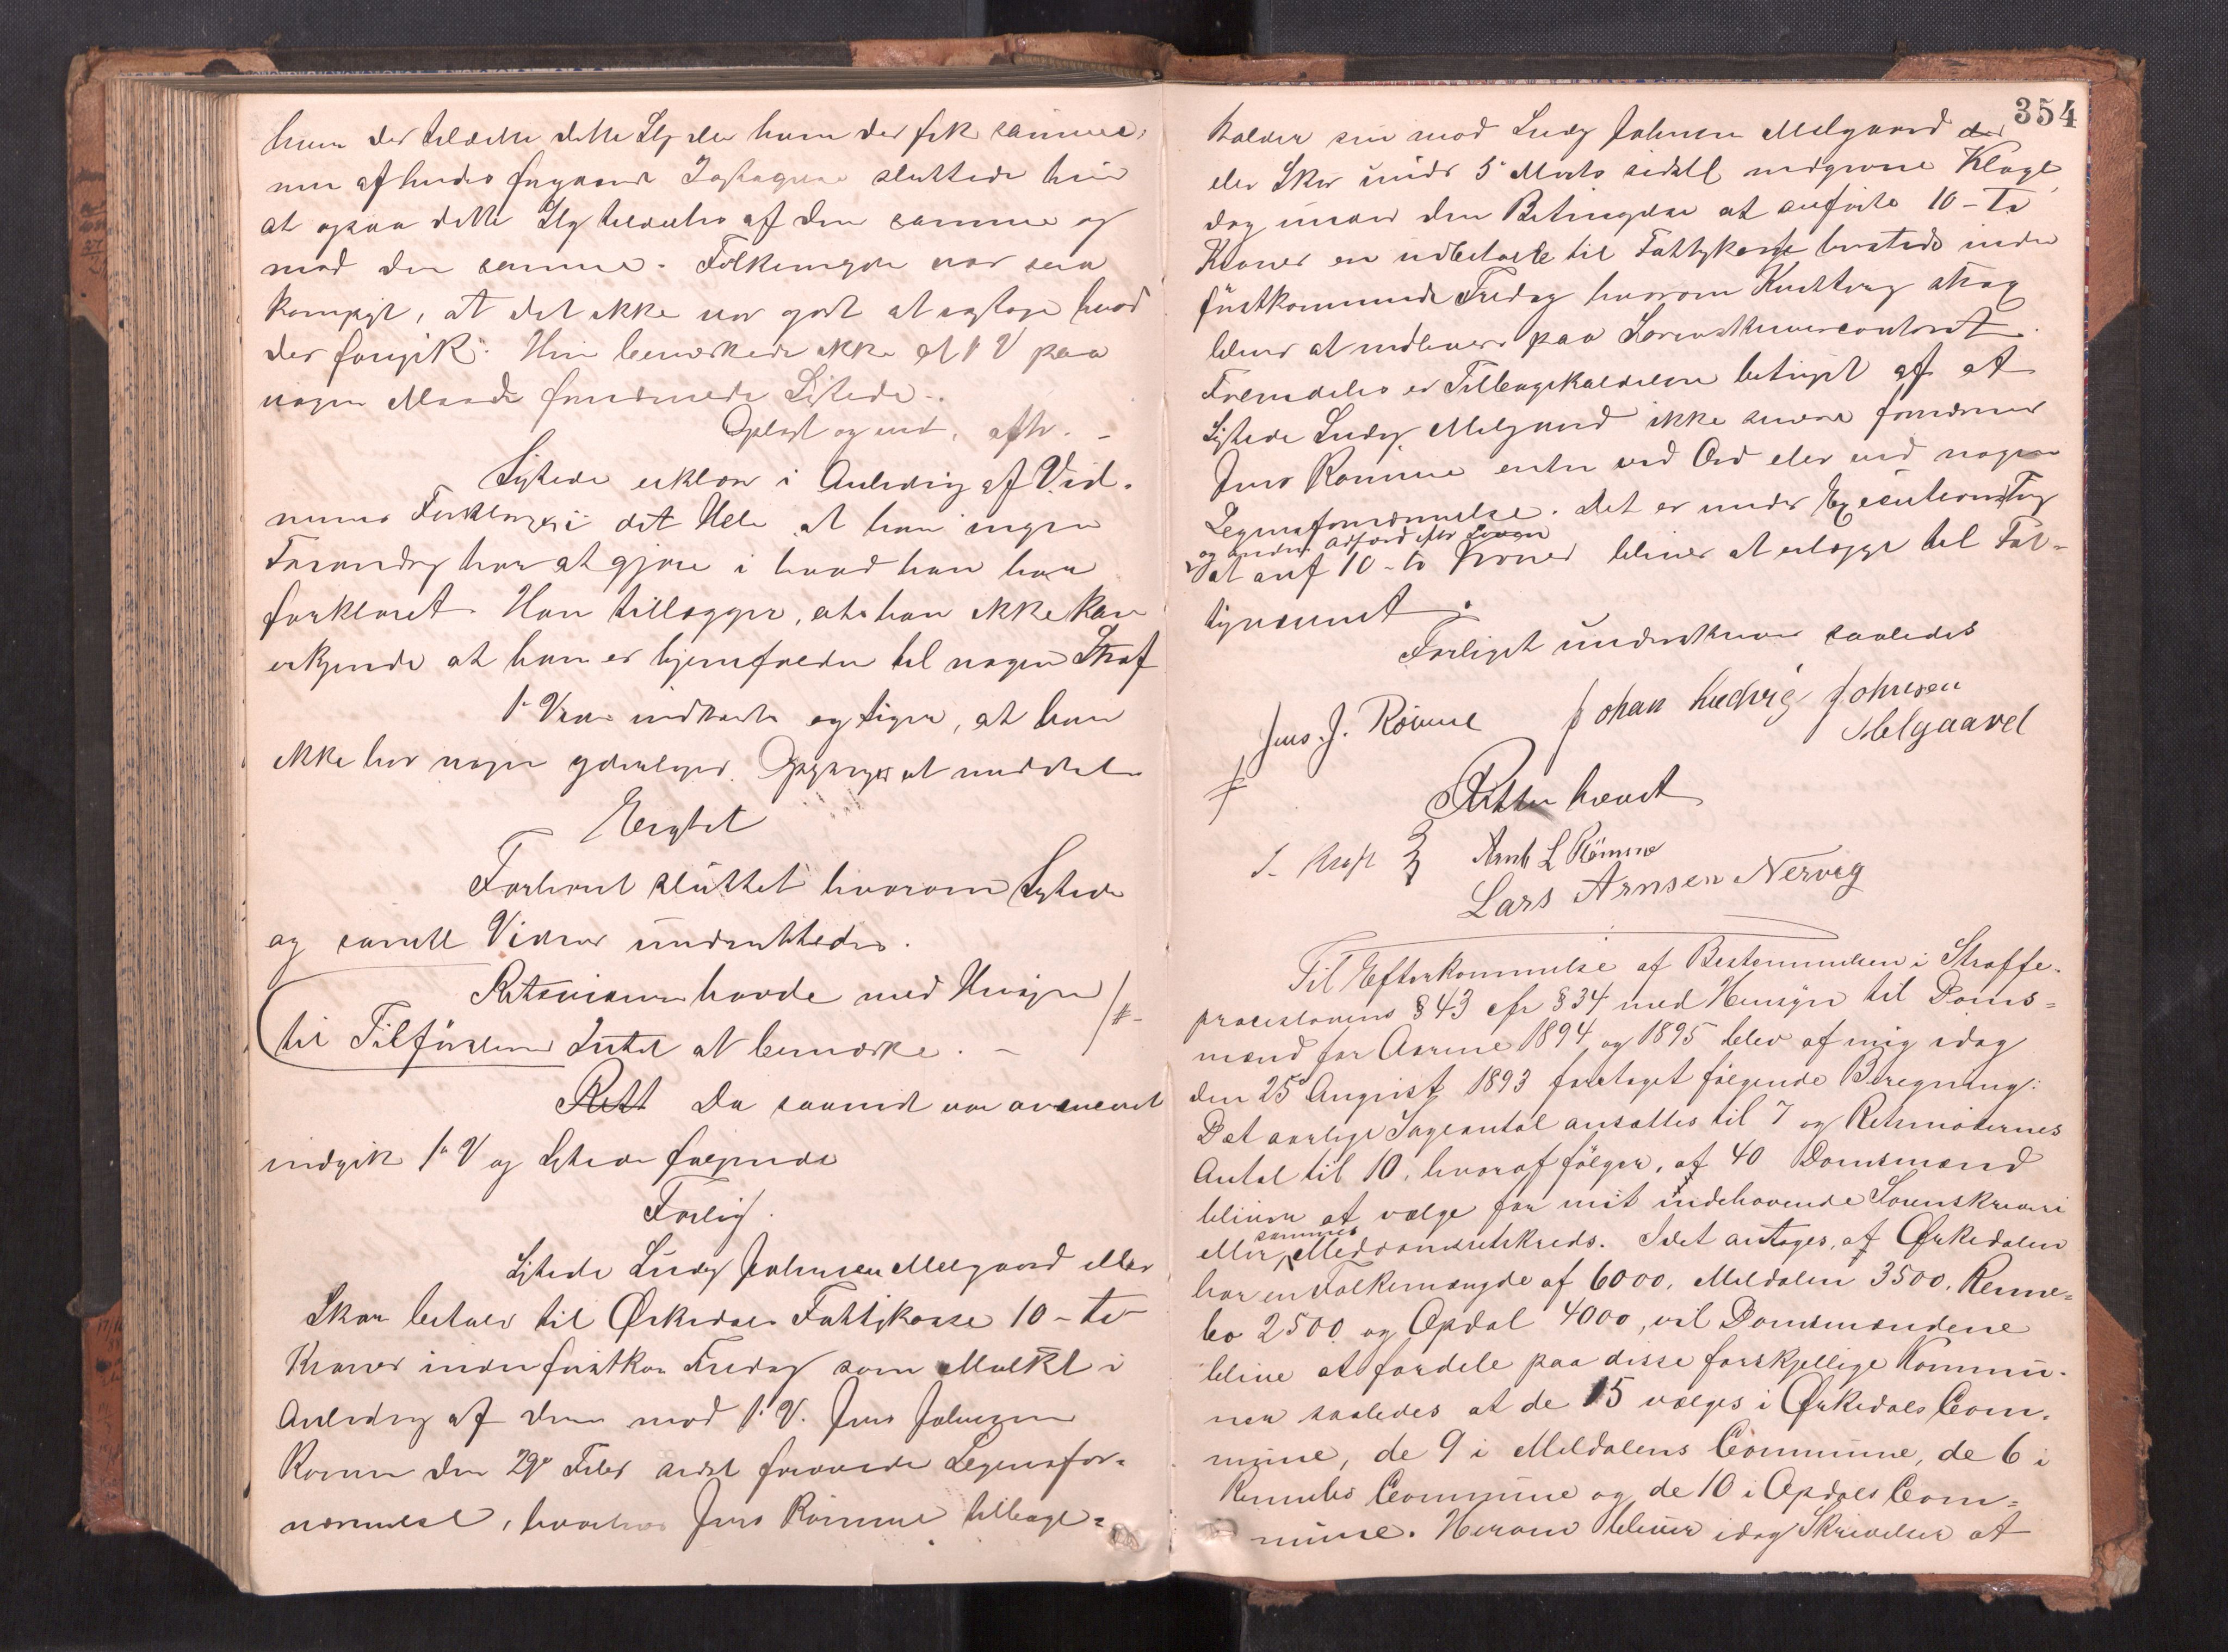 hvem der tildelte dette Slg eller hvem der fik samme,
men af hendes foregaaende Iagttagelse sluttede hun
at ogsaa dette Slg tildeltes af den samme og
mod den samme. Folkemængden var saa
kompakt, at det ikke var godt at iagttage hvad
der foregik. Hun bemærkede ikke at 1 V paa
nogen Maade fornærmede Sigtede.
Oplæst og vedt, afth. -
Sigtede erklær i Anledning af Vid-
nernes Forklaring i det Hele at han ingen
Forandring har at gjøre i hvad han har
forklaret. Han tillægger, at han ikke kan
erkjende at han er hjemfalden til nogen Straf
1ste Vidne indkaldtes og siger, at han
ikke har nogen yderligere Oplysninger at meddele
Eragtet
Forhøret sluttet hvorom Sigtede
og samtl Vidner underrettedes.
Retsvidnerne havde med Hensyn
til Tilførslerne Intet at bemærke. - #
Rett Da saavidt var avanceret
indgik 1ste V og Sigtede følgende
Forlig.
Sigtede Ludvig Johnsen Melgaard eller
Skar betaler til Ørkedals Fattigkasse 10 - ti
Kroner inden førstkom Fredag som Mulkt i
Anledning af den mod 1ste V. Jens Johnsen
Rømme den 29de Febr sidstl forøvede Legemsfor-
nærmelse, hvorhos Jens Rømme tilbage-
354
kalder sin mod Ludvig Johnsen Melgaard der
eller Skar under 5te Marts sidstl indgivne Klage,
dog under den Betingelse at anførte 10 - Ti
Kroner er indbetalt til Fattigkassen betids inden
førstkommende Fredag hvorom Kvittering strax
bliver at indlevere paa Sorenskrivercontoret.
Fremdeles er Tilbagekaldelsen betinget af at
Sigtede Ludvig Melgaard ikke senere fornærmer
Jens Rømme enten ved Ord eller ved nogen
Legemsfornærmelse. Det er under Executions Tvang
og anden Adfærd efter Loven
at anf 10 - ti Kroner bliver at erlægge til Fat-
tigvæsenet.
Forliget underskrives saaledes
Jens. J. Römme Johan Ludvig Johnsen
Melgaard
# Retten hævet
Arnt L Römme
Lars Arnsen Nervig
Til Efterkommelse af Bestemmelsen i Straffe-
proceslovens § 43 cfr § 34 med Hensyn til Doms-
mænd for Aarene 1894 og 1895 blev af mig idag
den 25de August 1893 foretaget følgende Beregning:
Det aarlige Sageantal ansattes til 7 og Retsmödernes
Antal til 10, hvoraf følger, at 40 Domsmænd
bliver at vælge for mit indehavende Sorenskriveri
sammes
eller Meddomsretskreds. Idet antages, at Ørkedalen
har en Folkemængde af 6000, Meldalen 3500, Renne-
bo 2500 og Opdal 4000, vil Domsmændene
blive at fordele paa disse forskjellige Kommu-
ner saaledes at de 15 vælges i Ørkedals Com-
mune, de 9 i Meldalens Commune, de 6 i
Rennebo Commune og de 10 i Opdals Com-
mune. Herom bliver idag Skrivelser at